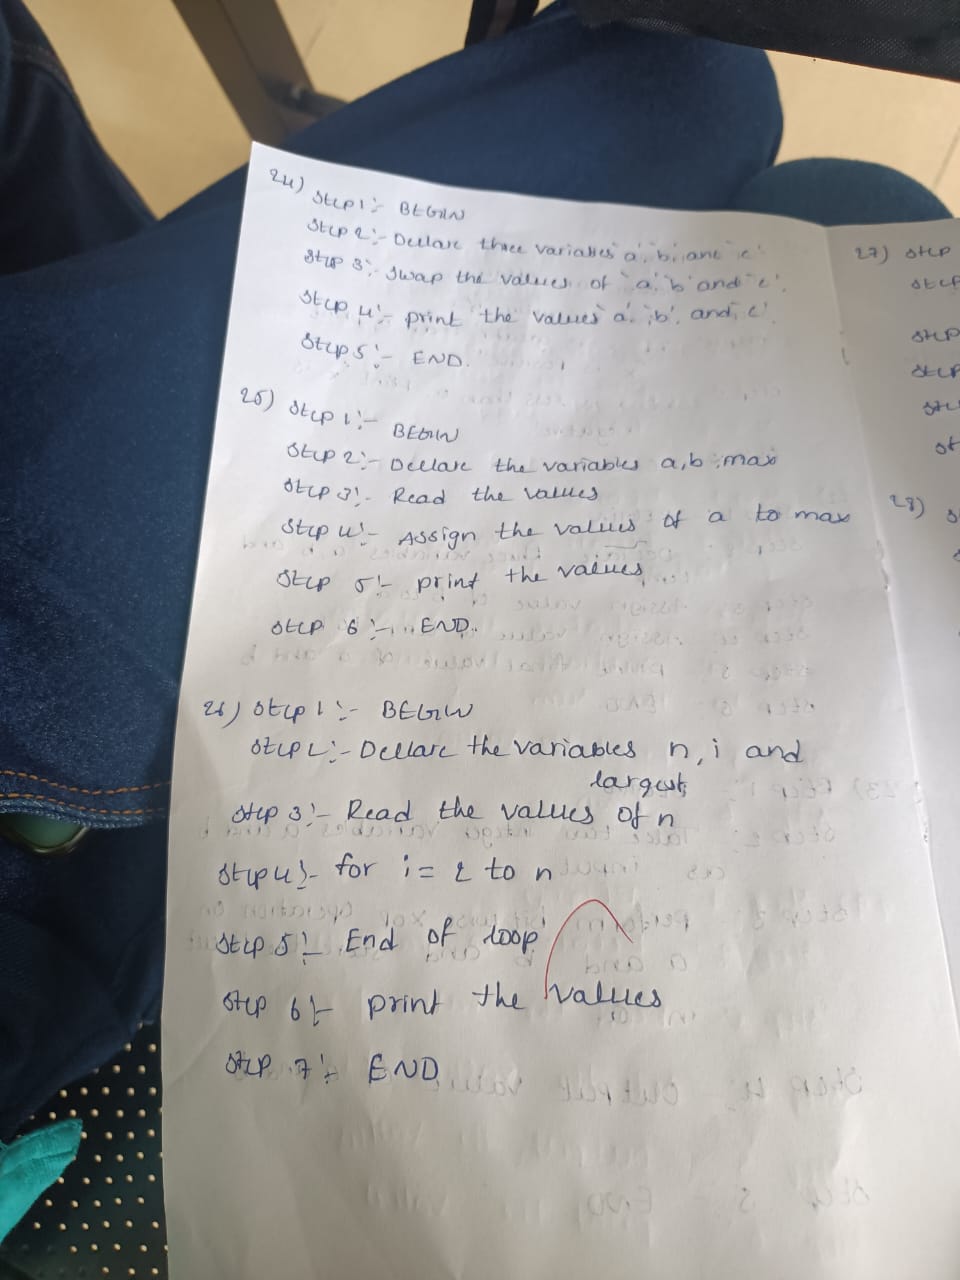 24) Step 1:- BEGIN
Step 2:- Declare three variables 'a', 'b', and 'c'
Step 3:- Swap the values of 'a', 'b' and 'c'.
Step 4:- print the values 'a', 'b', and, 'c'
Step 5:- END.
25) Step 1:- BEGIN
Step 2:- Declare the variables a, b, max
Step 3:- Read the values
Step 4:- Assign the values of a to max
Step 5:- print the values
Step 6:- END.
26) Step 1:- BEGIN
Step 2:- Declare the variables n, i and
largest,
Step 3:- Read the values of n
Step 4:- for i = 2 to n
Step 5:- End of loop
Step 6:- print the values
Step 7:- END
27) Step
Step
Step
Step
28)